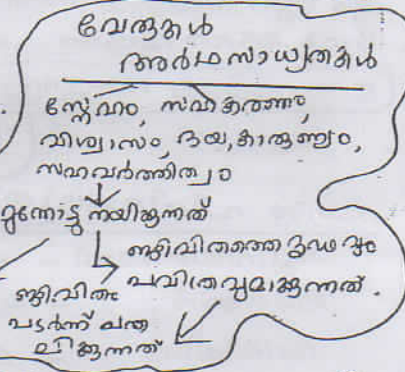 വേരുകൾ
അർഥസാധ്യതകൾ
സ്നേഹം, സഹകരണം,
വിശ്വാസം, ദയ, കാരുണ്യം,
സഹവർത്തിത്വം
മുന്നോട്ടു നയിക്കുന്നത്
ജീവിതത്തെ ദൃഢവും
പവിത്രവുമാക്കുന്നത്.
ജീവിതം
പടർന്ന് പന്ത
ലിക്കുന്നത്